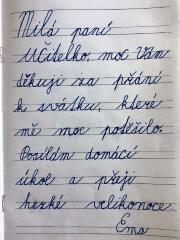 Milá paní
Učitelko, moc Vám
děkuji za přání
k svátku, které
mě moc potěšilo.
Posílám domácí
úkol a přeji
hezké velikonoce
Ema